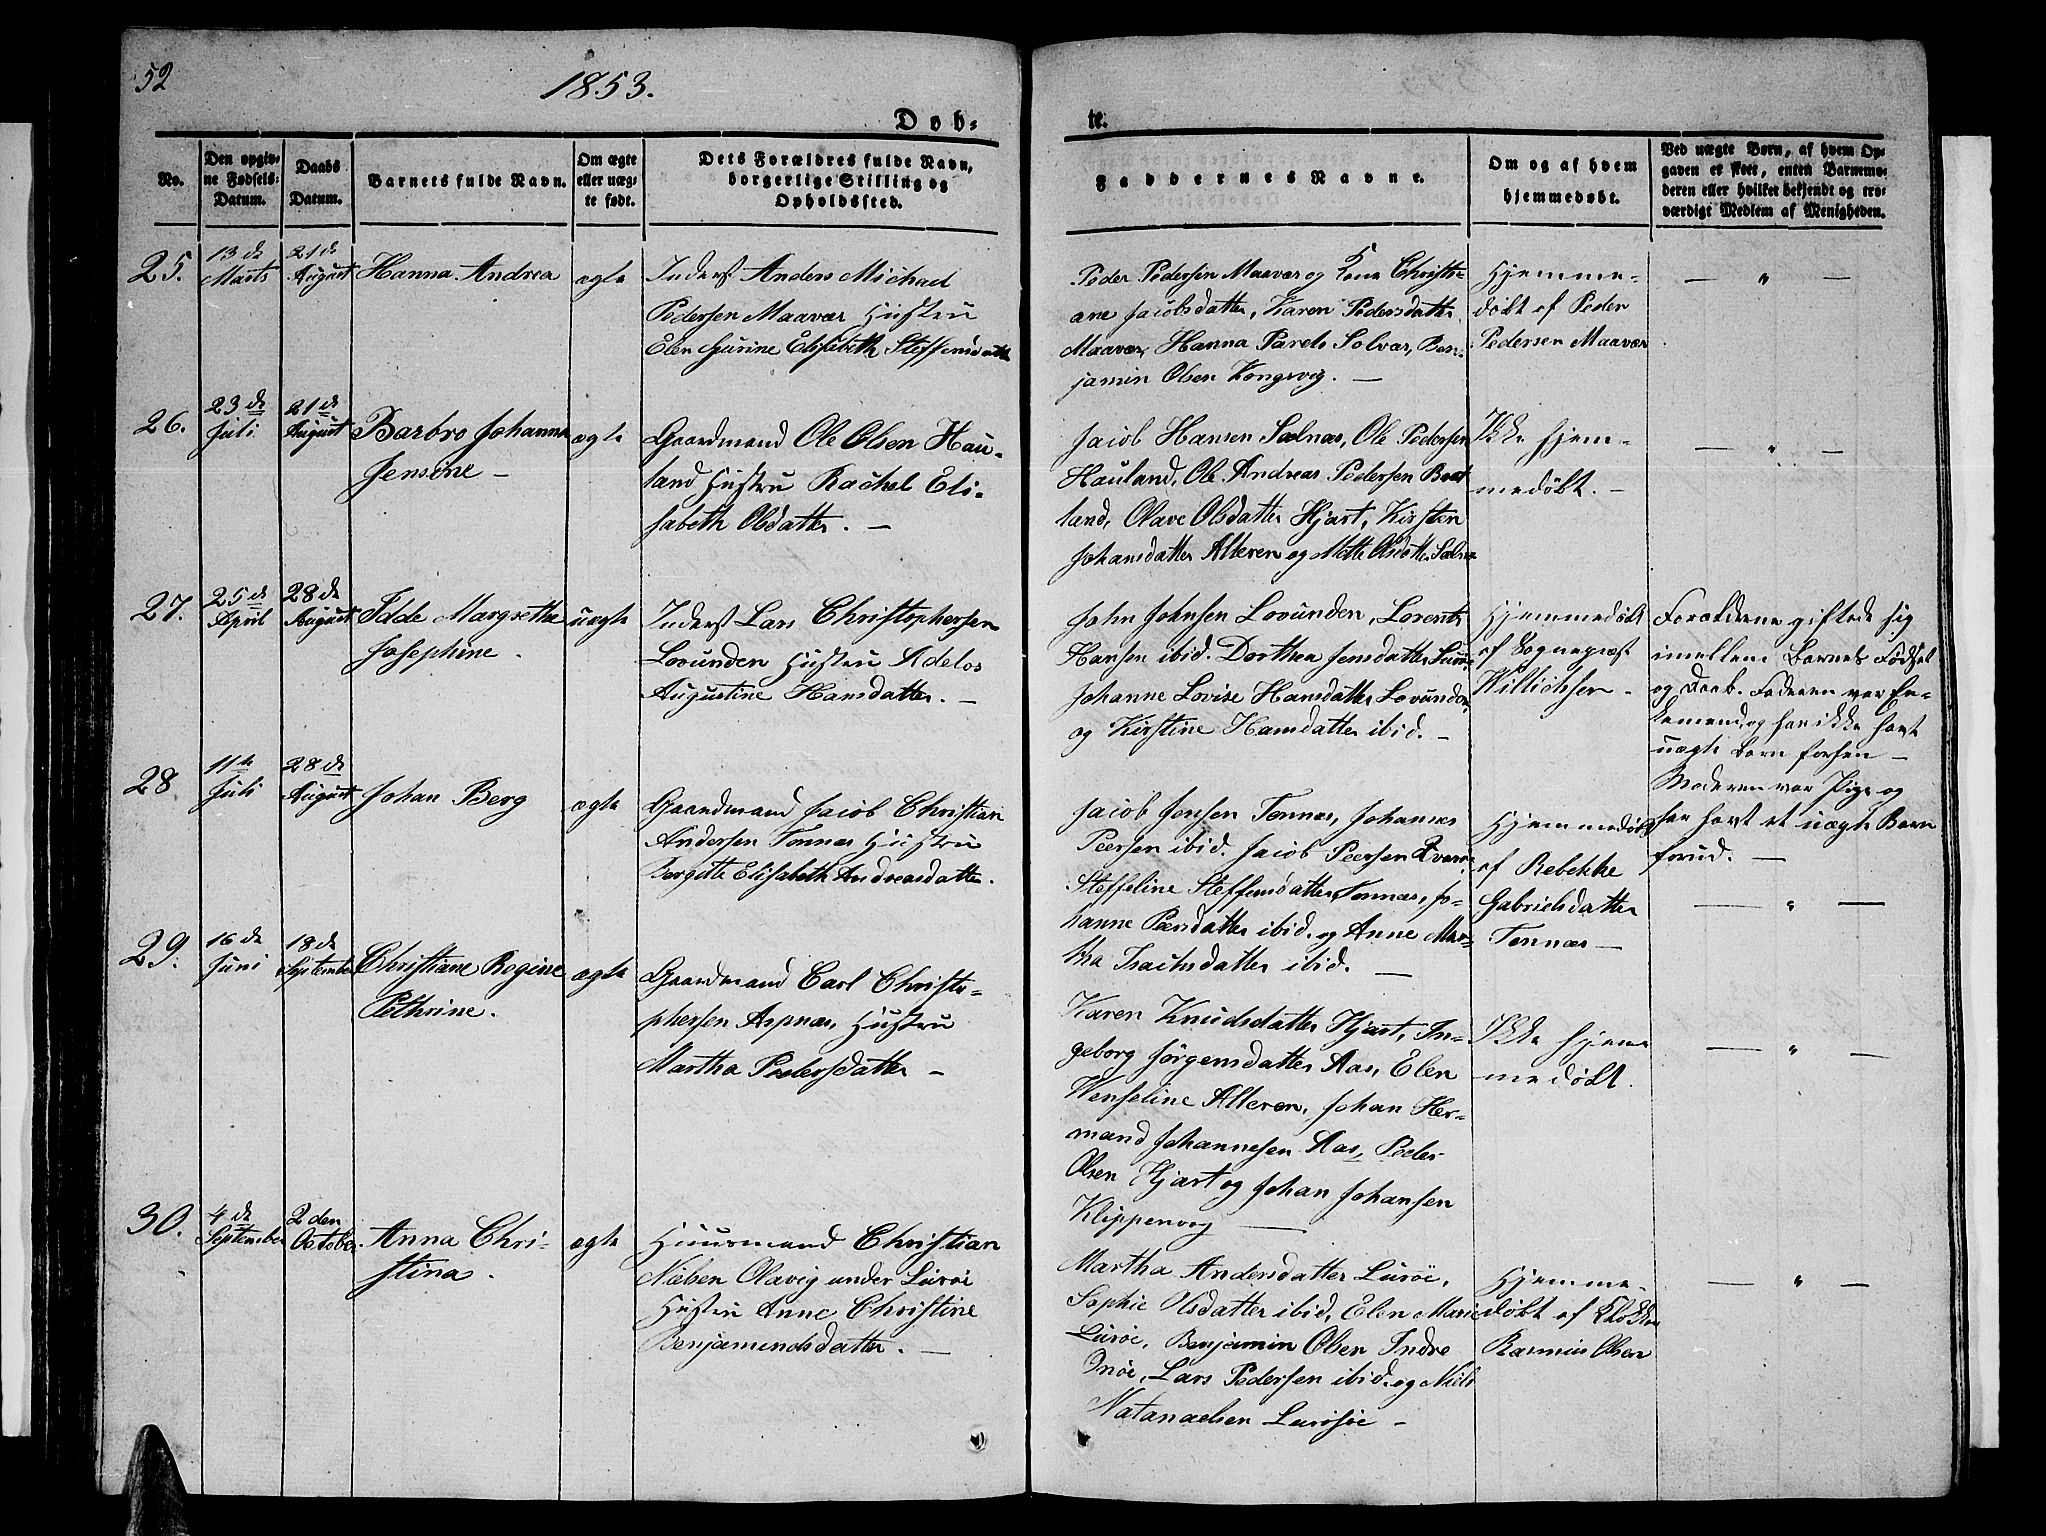 52
1853.
Døb-
te.
No.
Den opgiv-
ne Fødsels-
Datum.
Daabs
Datum.
Barnets fulde Navn.
Om ægte
eller uæg-
te født.
Dets Forældres fulde Navn,
borgerlige Stilling og
Opholdssted.
Faddernes Navne.
Om og af hvem
hjemmedøbt.
Ved uægte Børn, af hvem Op-
gaven er skeet, enten Barnemo-
deren eller hvilket bekjendt og tro-
værdigt Medlem af Menigheden.
25.
13de
Marts
21de
August
Hanna Andrea
ægte
Inderst Anders Michael
Pedersen Maavær Hustru
Elen Gurine Elisabeth Steffensdatter
Peder Pedersen Maavær og Kone Christi-
ane Jacobsdatter, Karen Pedersdatter
Maavær, Hanna Parels Solvær, Ben-
jamin Olsen Kongsvig. —
Hjemme-
døbt af Peder
Pedersen Maavær
— " —
26.
23de
Juli
21de
August
Barbro Johanna
Jensine —
ægte
Gaardmand Ole Olsen Hau-
land Hustru Rachel Eli-
sabeth Olsdatter. —
Jacob Hansen Selnæs, Ole Pedersen
Hauland, Ole Andreas Pedersen Brat
land, Olave Olsdatter Hjart, Kirsten
Johansdatter Alteren og Mette Olsdatter Selnæs
Ikke hjem-
medøbt. —
— " —
27.
25de
April
28de
August
Idde Margrethe
Josephine.
uægte
Inderst Lars Christophersen
Lovunden Hustru Adelos
Augustine Hansdatter. —
John Johnsen Lovunden, Lorents
Hansen ibid. Dorthea Jensdatter
Johanne Lovise Hansdatter Lovunden
og Kirstine Hansdatter ibid. —
Hjemmedøbt
af Sognepræst
Willichsen —
Forældrene giftede sig
imellem Barnets Fødsel
og Daab. Faderen var En-
kemand, og har ikke havt
uægte Barn forhen —
Moderen var Pige og
har havt et uægte Barn
forud. —
28
11te
Juli
28de
August
Johan Berg
ægte
Gaardmand Jacob Christian
Andersen Tonnæs Hustru
Bergitte Elisabeth Andreasdatter.
Jacob Jensen Tonnæs, Johannes
Peersen ibid. Jacob Peersen
Steffeline Steffensdatter Tonnæs, Jo-
hanne Peersdatter ibid. og Anne Mar-
tha Isachsdatter ibid. —
Hjemmedøbt
af Rebekke
Gabrielsdatter
Tonnæs —
— " —
29.
16de
Juni
18de
September
Christiane Regine
Pethrine.
ægte
Gaardmand Carl Christo-
phersen Aspnæs, Hustru
Martha Pedersdatter —
Karen Knudsdatter Hjart, In-
geborg Jörgensdatter Aas, Elen
Wenseline Alteren, Johan Her-
mand Johannesen Aas, Peder
Olsen Hjart og Johan Johansen
Klippenvog —
Ikke hjem
medøbt.
— " —
30.
4de
September
2den
October
Anna Chri-
stina.
ægte
Huusmand Christian
Nielsen Olavig under Lurøe
Hustru Anne Christine
Benjamendsdatter. —
Martha Andersdatter Lurøe,
Sophie Olsdatter ibid, Elen Marie
Lurøe, Benjamin Olsen Indre
Qnøe, Lars Pedersen ibid. og Niels
Natanaelsen Lurøsøe —
Hjemme-
døbt af
Rasmus Olsen
— " —